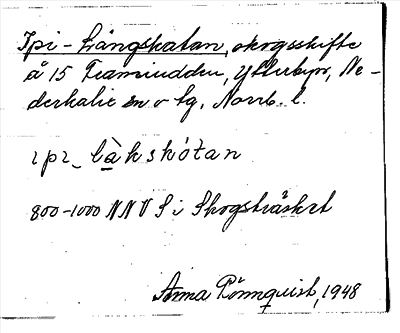 Ipi-Långskatan, skogsskifte
å 15 Framudden, Ytterbyn, Ne-
derkalix sn o tg, Norrb. l.
ɩpɩ_ làkskótan
800-1000 NNV S i Skogsträsket
Anna Rönnquist, 1948